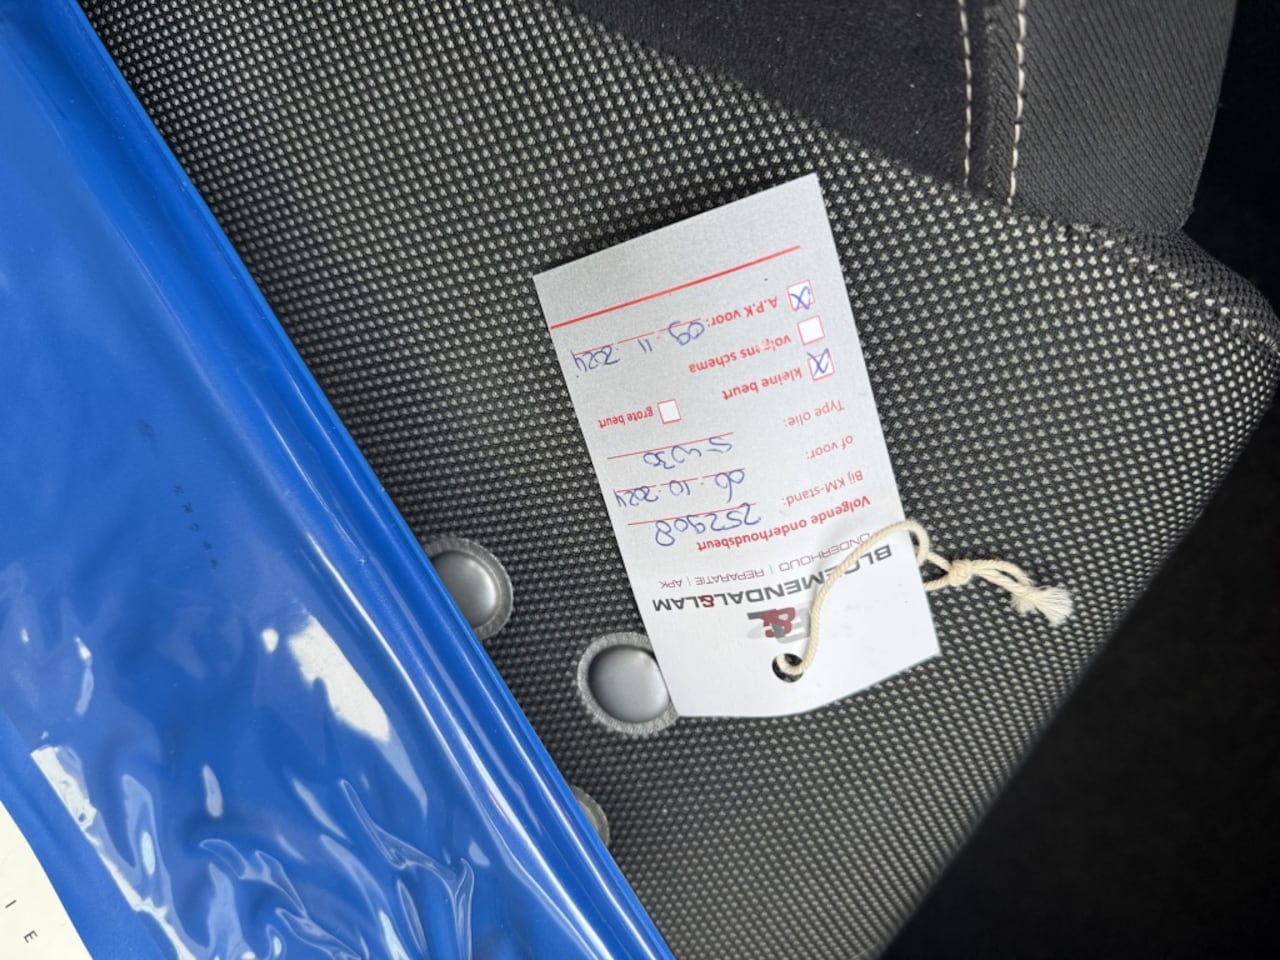 B&L
BLOEMENDAL&LAM
ONDERHOUD | REPARATIE | APK
Volgende onderhoudsbeurt
Bij KM-stand: 252908
of voor: 06.10.2024
Type olie: 5W30
☒ kleine beurt ☐ grote beurt
☐ volgens schema
☒ A.P.K voor: 09.11.2024
I E